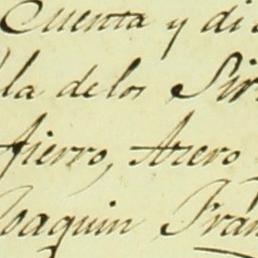 Cuenta y di
la de los Sir
fierro, Azero
Joaquin Fran